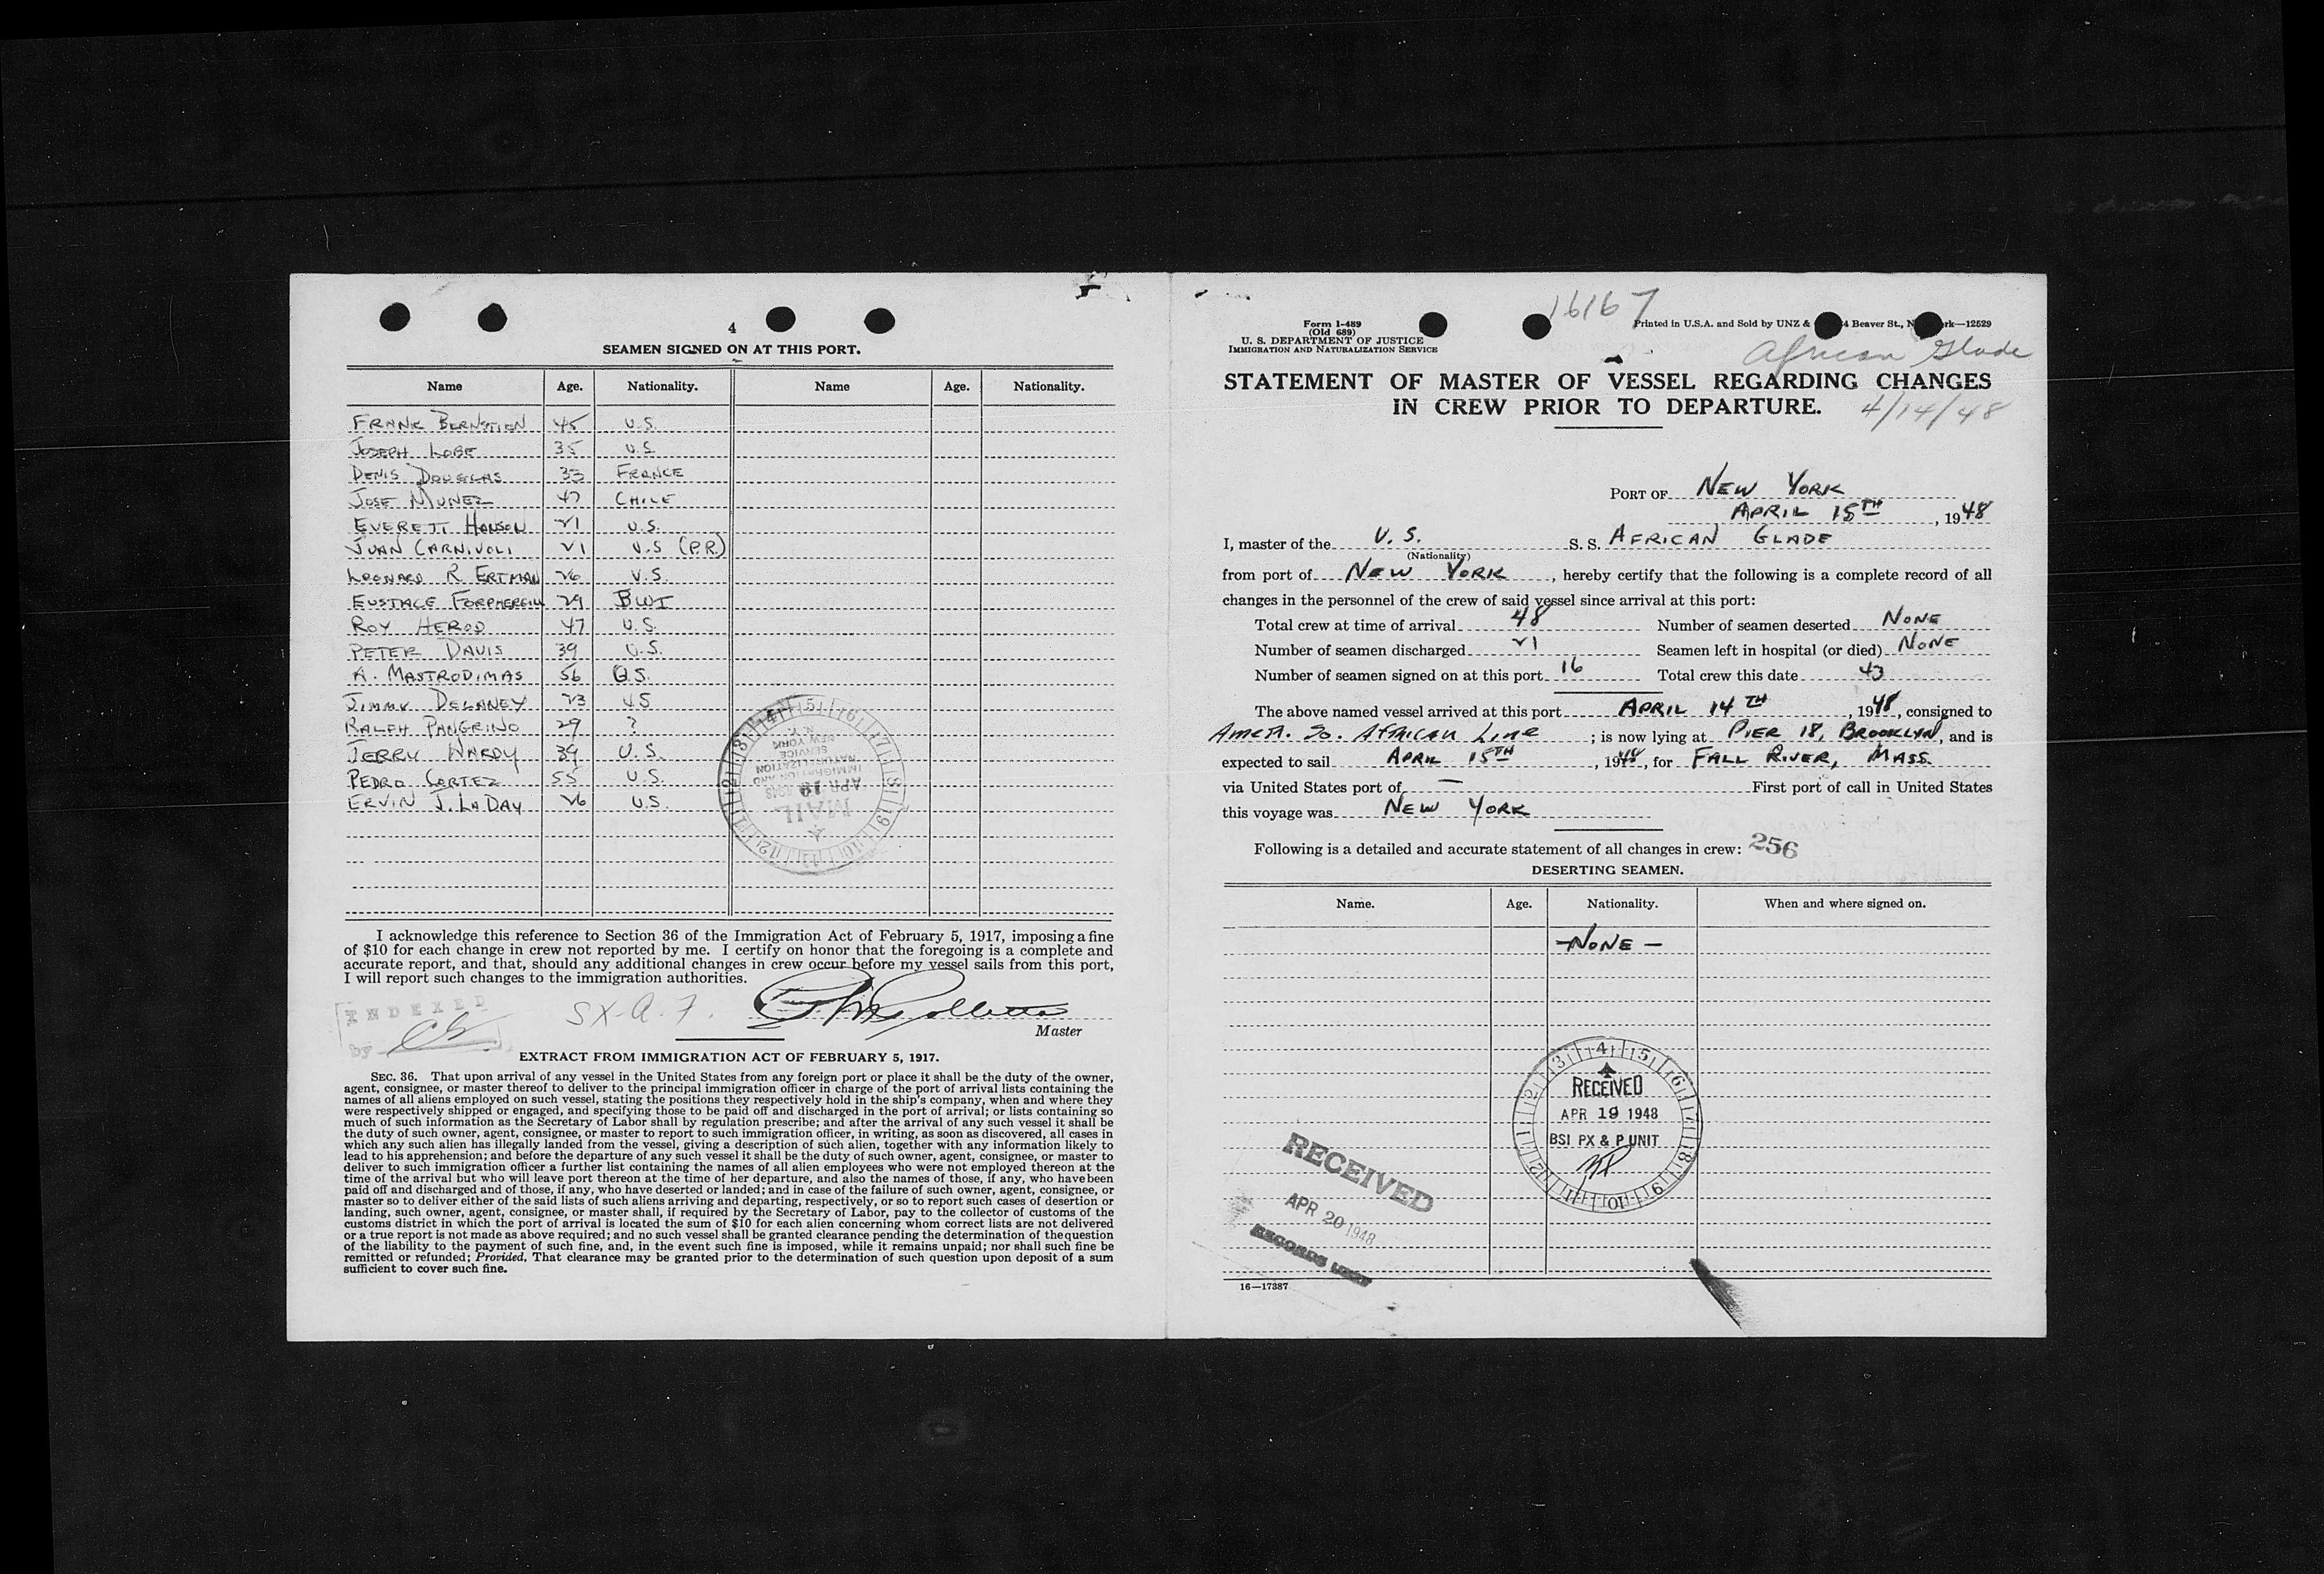 4
SEAMEN SIGNED ON AT THIS PORT.
Name Age. Nationality. Name Age. Nationality.
FRANK BERNSTIEN 45 U.S.
JOSEPH LOBE 35 U.S.
DENIS DOUGLAS 33 FRANCE
JOSE MUNEZ 47 CHILE
EVERETT HANSEN 21 U.S.
JUAN CARNIVOLI 21 U.S (P.R.)
LEONARD R. ERTMAN 26 U.S.
EUSTACE 29 BWI
ROY HEROD 47 U.S.
PETER DAVIS 39 U.S.
A. MASTRODIMAS 56 U.S.
JIMMY DELANEY 23 US
RALPH PANGRINO 29 ?
JERRY HARDY 39 U.S.
PEDRO CORTEZ 55 U.S.
ERVIN J. LADAY 26 U.S.
MAIL
APR 19 1948
IMMIGRATION AND
NATURALIZATION
SERVICE
NEW YORK
N. Y.
I acknowledge this reference to Section 36 of the Immigration Act of February 5, 1917, imposing a fine
of $10 for each change in crew not reported by me. I certify on honor that the foregoing is a complete and
accurate report, and that, should any additional changes in crew occur before my vessel sails from this port,
I will report such changes to the immigration authorities.
INDEXED
by
SX-a. 7.
Master
EXTRACT FROM IMMIGRATION ACT OF FEBRUARY 5, 1917.
SEC. 36. That upon arrival of any vessel in the United States from any foreign port or place it shall be the duty of the owner,
agent, consignee, or master thereof to deliver to the principal immigration officer in charge of the port of arrival lists containing the
names of all aliens employed on such vessel, stating the positions they respectively hold in the ship's company, when and where they
were respectively shipped or engaged, and specifying those to be paid off and discharged in the port of arrival; or lists containing so
much of such information as the Secretary of Labor shall by regulation prescribe; and after the arrival of any such vessel it shall be
the duty of such owner, agent, consignee, or master to report to such immigration officer, in writing, as soon as discovered, all cases in
which any such alien has illegally landed from the vessel, giving a description of such alien, together with any information likely to
lead to his apprehension; and before the departure of any such vessel it shall be the duty of such owner, agent, consignee, or master to
deliver to such immigration officer a further list containing the names of all alien employees who were not employed thereon at the
time of the arrival but who will leave port thereon at the time of her departure, and also the names of those, if any, who have been
paid off and discharged and of those, if any, who have deserted or landed; and in case of the failure of such owner, agent, consignee, or
master so to deliver either of the said lists of such aliens arriving and departing, respectively, or so to report such cases of desertion or
landing, such owner, agent, consignee, or master shall, if required by the Secretary of Labor, pay to the collector of customs of the
customs district in which the port of arrival is located the sum of $10 for each alien concerning whom correct lists are not delivered
or a true report is not made as above required; and no such vessel shall be granted clearance pending the determination of the question
of the liability to the payment of such fine, and, in the event such fine is imposed, while it remains unpaid; nor shall such fine be
remitted or refunded; Provided, That clearance may be granted prior to the determination of such question upon deposit of a sum
sufficient to cover such fine.
16167
Form I-489
(Old 689)
U. S. DEPARTMENT OF JUSTICE
IMMIGRATION AND NATURALIZATION SERVICE
Printed in U.S.A. and Sold by UNZ & 4 Beaver St., N rk—12529
African Glade
STATEMENT OF MASTER OF VESSEL REGARDING CHANGES
IN CREW PRIOR TO DEPARTURE.
4/14/48
PORT OF NEW YORK
APRIL 15TH, 1948
I, master of the U.S. S. S. AFRICAN GLADE
(Nationality)
from port of NEW YORK, hereby certify that the following is a complete record of all
changes in the personnel of the crew of said vessel since arrival at this port:
Total crew at time of arrival 48 Number of seamen deserted NONE
Number of seamen discharged 21 Seamen left in hospital (or died) NONE
Number of seamen signed on at this port 16 Total crew this date 43
The above named vessel arrived at this port APRIL 14TH, 1948, consigned to
Amer. So. African Line; is now lying at PIER 18, BROOKLYN, and is
expected to sail APRIL 15TH, 1948, for FALL RIVER, MASS.
via United States port of — First port of call in United States
this voyage was NEW YORK
Following is a detailed and accurate statement of all changes in crew: 256
DESERTING SEAMEN.
Name. Age. Nationality. When and where signed on.
—NONE—
RECEIVED
APR 19 1948
BSI PX & P UNIT
RECEIVED
APR 20 1948
RECORDS
16—17387